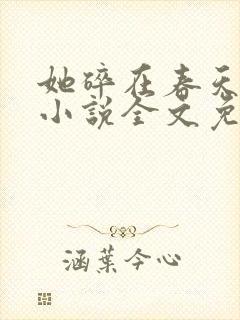 她碎在春天
小说全文免
涵葉今心